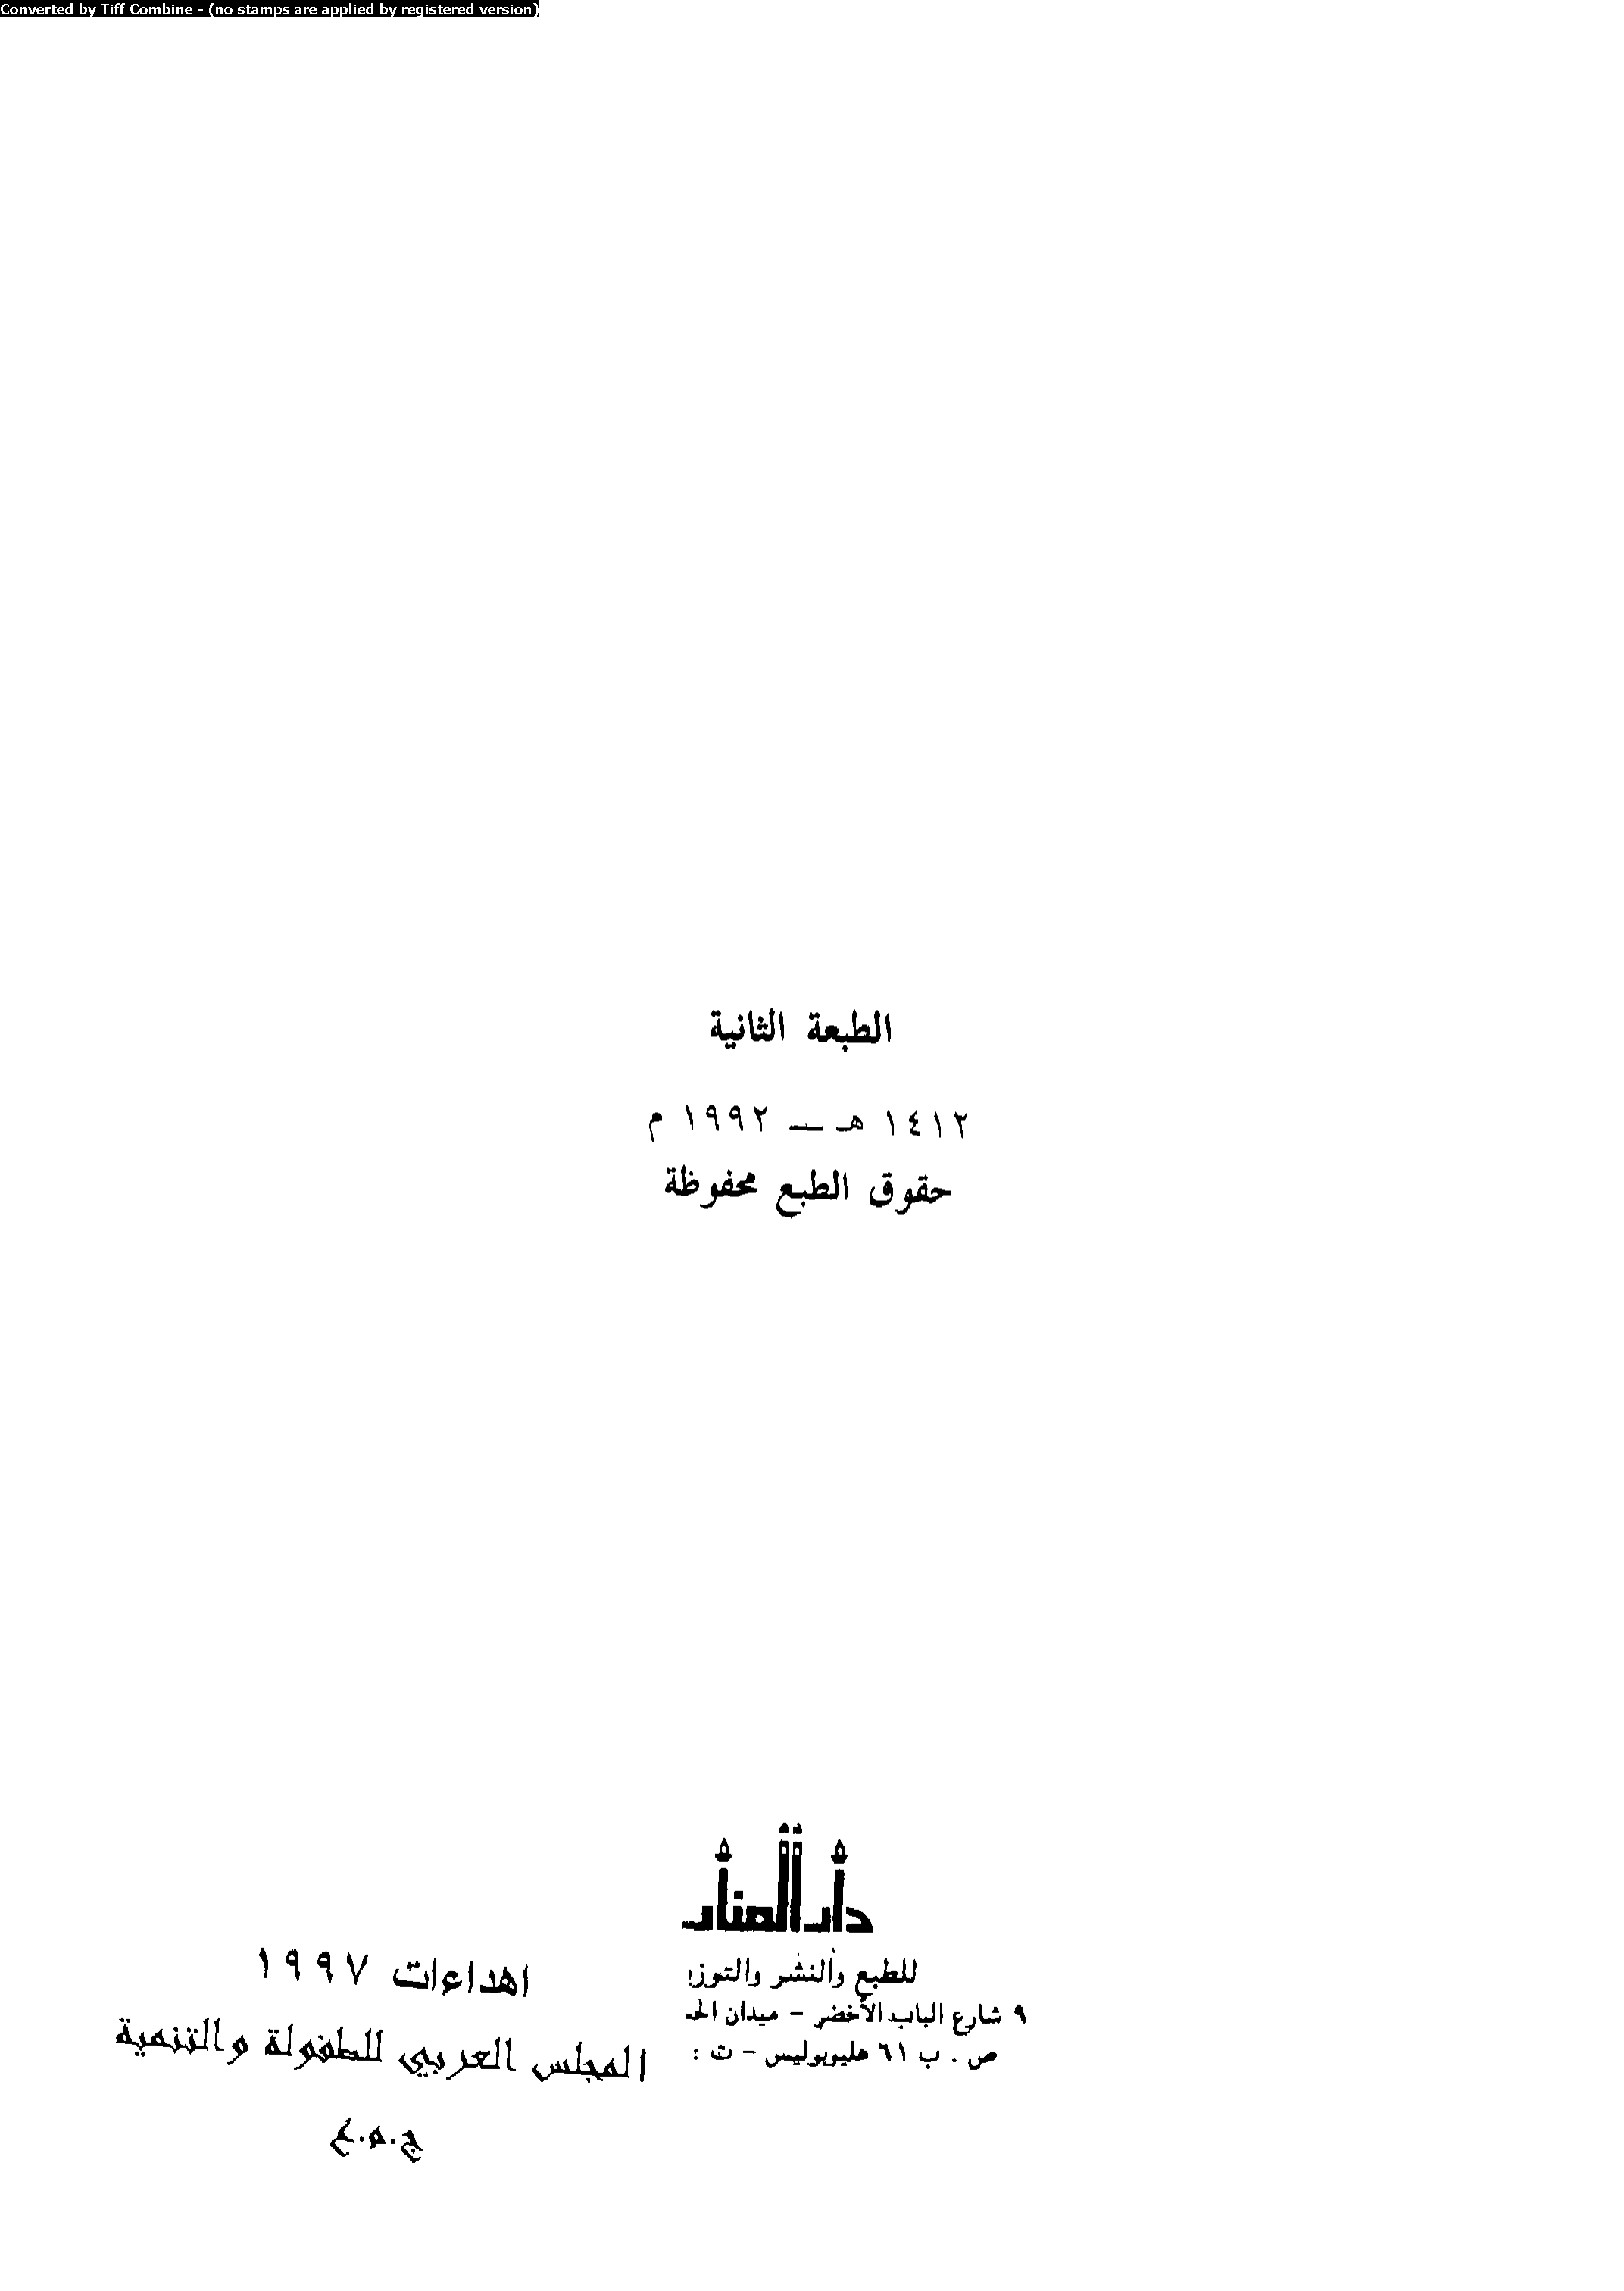 Converted by Tiff Combine - (no stamps are applied by registered version)
الطبعة الثانية
١٤١٢ هـ — ١٩٩٢ م
حقوق الطبع محفوظة
دار المنار
للطبع والنشر والتوز
٩ شارع الباب الأخضر - ميدان الحـ
ص . ب ٦١ هليوبوليس - ت :
اهداءات ١٩٩٧
المجلس العربي للطفولة والتنمية
ج.م.ع